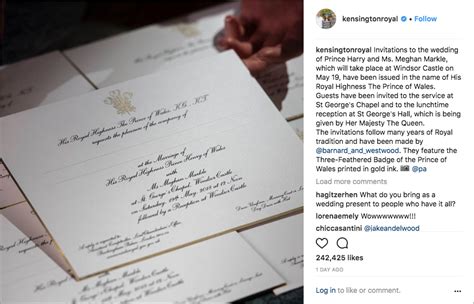 His Royal Highness The Prince of Wales, KG, KT
requests the pleasure of the company of
at the Marriage of
His Royal Highness Prince Henry of Wales
with
Ms. Meghan Markle
at St. George's Chapel, Windsor Castle
on Saturday, 19th May, 2018 at 12 Noon
followed by a Reception at Windsor Castle
kensingtonroyal • Follow
kensingtonroyal Invitations to the wedding
of Prince Harry and Ms. Meghan Markle,
which will take place at Windsor Castle on
May 19, have been issued in the name of His
Royal Highness The Prince of Wales.
Guests have been invited to the service at
St George's Chapel and to the lunchtime
reception at St George's Hall, which is being
given by Her Majesty The Queen.
The invitations follow many years of Royal
tradition and have been made by
@barnard_and_westwood. They feature the
Three-Feathered Badge of the Prince of
Wales printed in gold ink. @pa
Load more comments
hagitzerhen What do you bring as a
wedding present to people who have it all?
lorenaemely Wowwwwwww!!!
chiccasantini @jakeandelwood
242,425 likes
1 DAY AGO
Log in to like or comment.